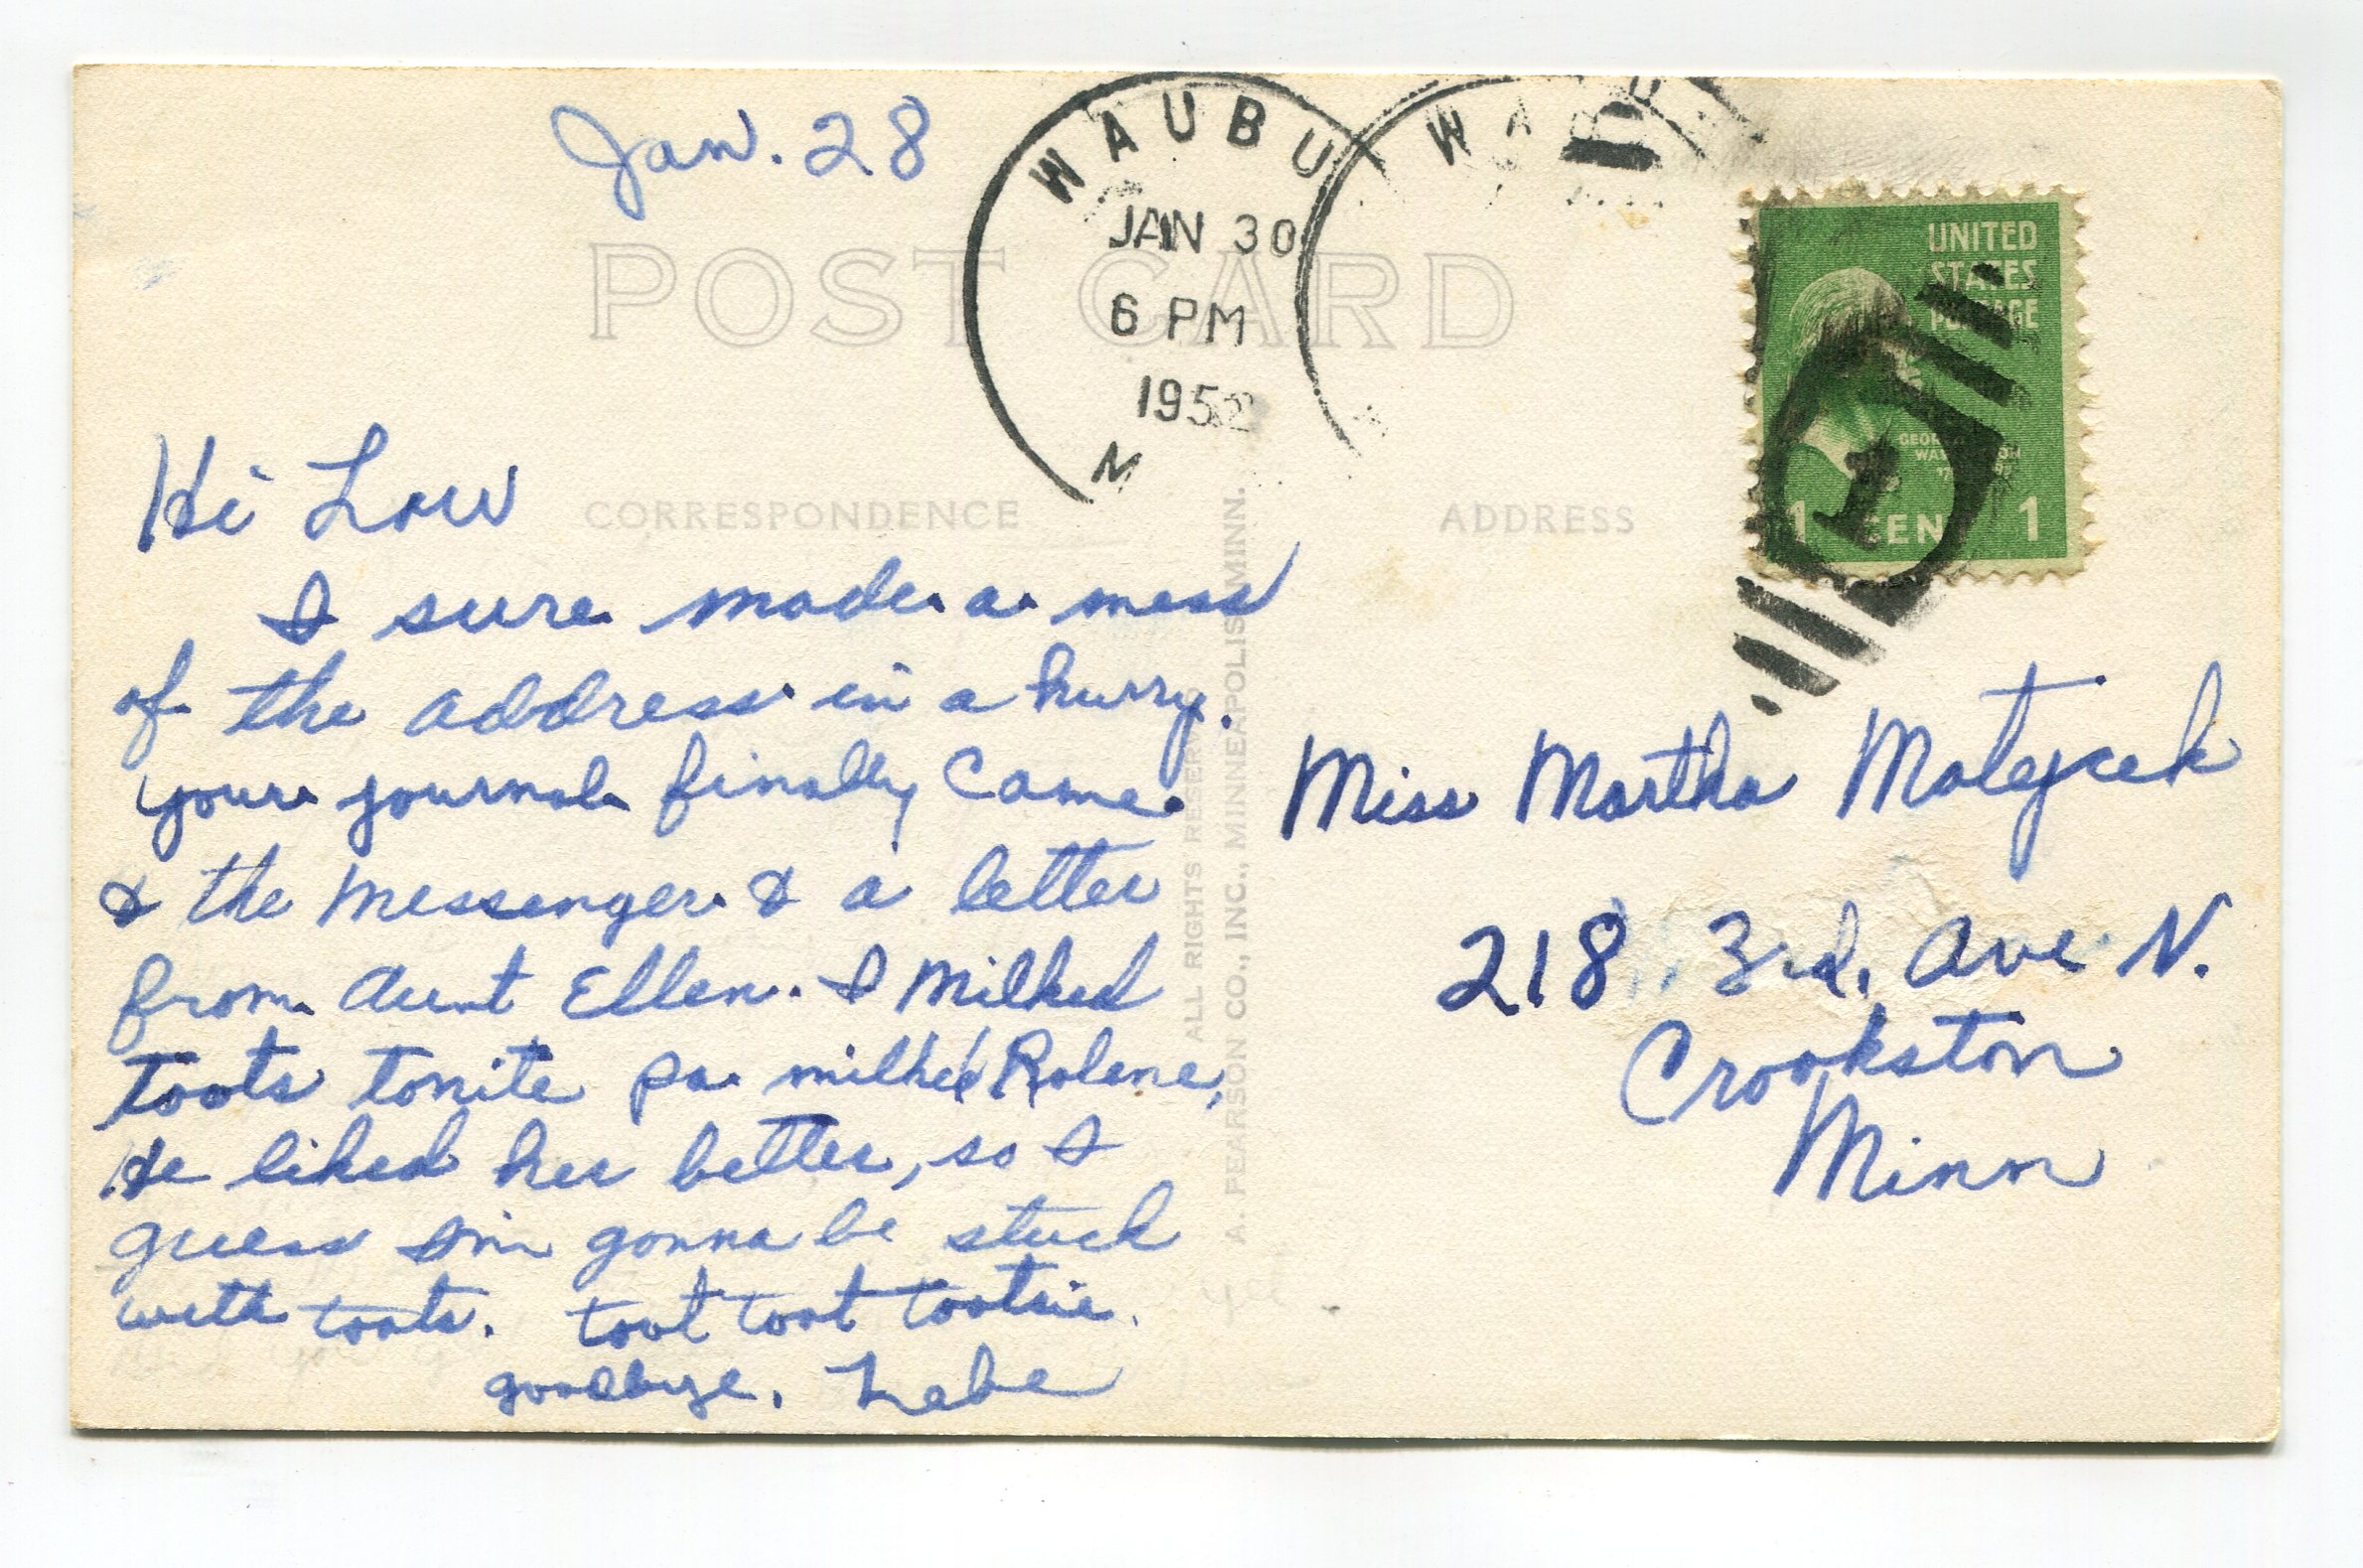 Jan. 28
WAUBU
JAN 30
6 PM
1952
M
W A
UNITED
STATES
POSTAGE
1 CENT 1
POST CARD
CORRESPONDENCE
ADDRESS
Hi Low
I sure made a mess
of the address in a hurry.
your journal finally came
& the messenger & a letter
from Aunt Ellen. I milked
toots tonite pa milked Rolene,
He liked her better, so I
guess I'm gonna be stuck
with toots. toot toot tootsie.
goodbye. Labe
Miss Martha Matejcek
218 3rd. Ave N.
Crookston
Minn
ALL RIGHTS RESERVED
A. FEARSON CO., INC., MINNEAPOLIS, MINN.